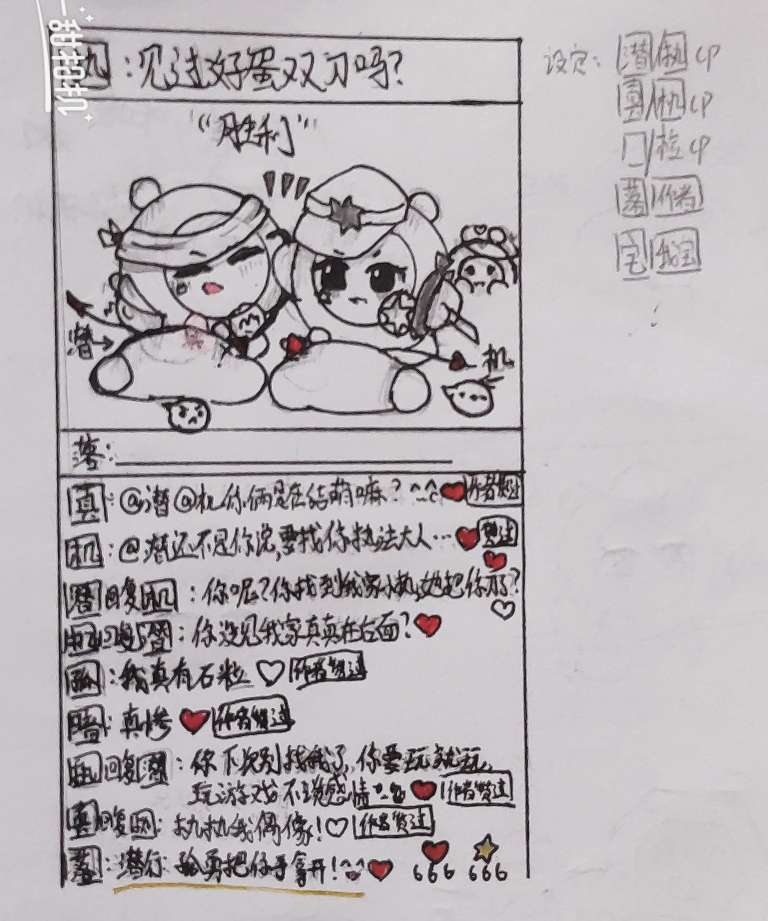 甜相机
执:见过好蛋双刀吗?
“胜利”
潜→
机
落:
真:@潜@机你俩是在结萌嘛? 作者赞过
机:@潜还不是你说,要找你执法大人… 赞过
潜回复机:你呢?你找到我家小执,她把你
机回复潜:你没见我家真真在右面?
我真有石粒 作者赞过
暗:真惨 作者赞过
执回复潜:你下次别找我了,你要玩就玩,
玩游戏不谈感情 作者赞过
真回复执:执执我偶像! 作者赞过
落:潜行 把你手拿开! 666 666
设定:潜/执CP
真/机CP
CP
落 作者
宝 我宝